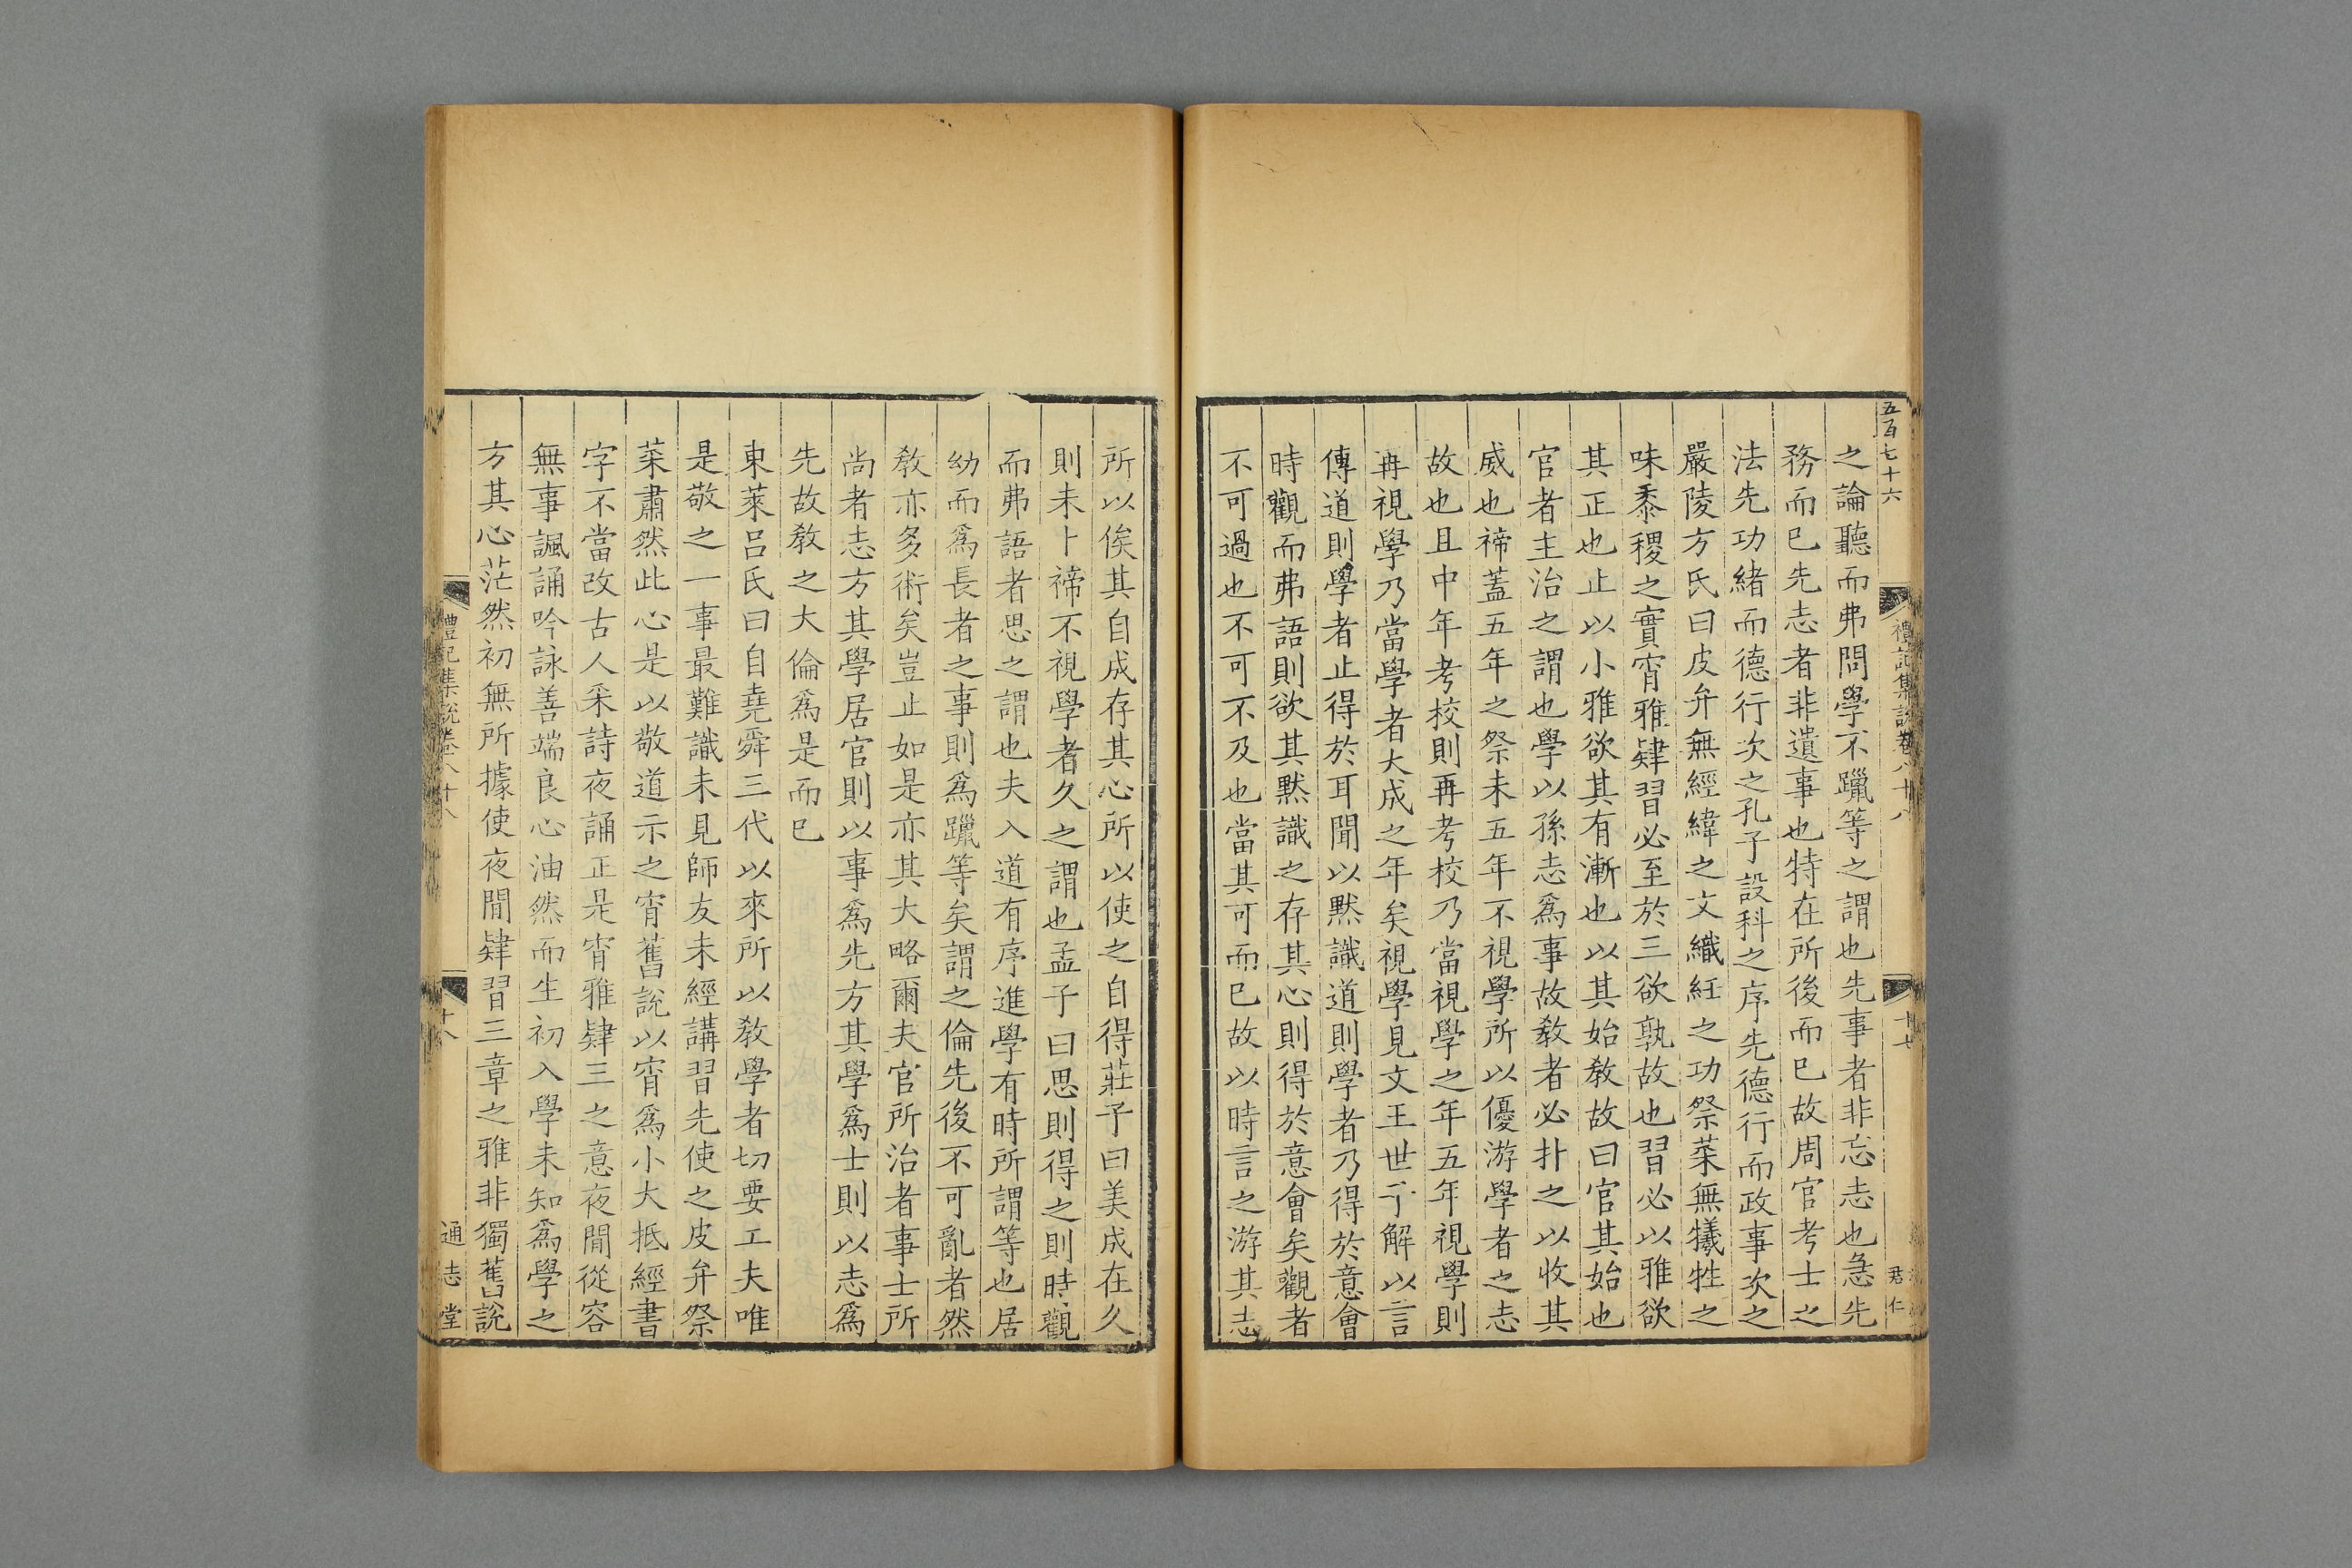 五百七十六
禮記集說卷八十八
十七
君仁
之論聽而弗問學不躐等之謂也先事者非忘志也急先
務而已先志者非遺事也特在所後而已故周官考士之
法先功緒而德行次之孔子設科之序先德行而政事次之
嚴陵方氏曰皮弁無經緯之文織紝之功祭菜無犧牲之
味黍稷之實宵雅肄習必至於三欲孰故也習必以雅欲
其正也止以小雅欲其有漸也以其始教故曰官其始也
官者主治之謂也學以孫志爲事故教者必扑之以收其
威也禘蓋五年之祭未五年不視學所以優游學者之志
故也且中年考校則再考校乃當視學之年五年視學則
再視學乃當學者大成之年矣視學見文王世子解以言
傳道則學者止得於耳聞以默識道則學者乃得於意會
時觀而弗語則欲其默識之存其心則得於意會矣觀者
不可過也不可不及也當其可而已故以時言之游其志
所以俟其自成存其心所以使之自得莊子曰美成在久
則未卜禘不視學者久之謂也孟子曰思則得之則時觀
而弗語者思之謂也夫入道有序進學有時所謂等也居
幼而爲長者之事則爲躐等矣謂之倫先後不可亂者然
教亦多術矣豈止如是亦其大略爾夫官所治者事士所
尚者志方其學居官則以事爲先方其學爲士則以志爲
先故教之大倫爲是而已
東萊呂氏曰自堯舜三代以來所以教學者切要工夫唯
是敬之一事最難識未見師友未經講習先使之皮弁祭
菜肅然此心是以敬道示之宵舊說以宵爲小大抵經書
字不當改古人采詩夜誦正是宵雅肄三之意夜閒從容
無事諷誦吟詠善端良心油然而生初入學未知爲學之
方其心茫然初無所據使夜閒肄習三章之雅非獨舊說
禮記集說卷八十八
十八
通志堂